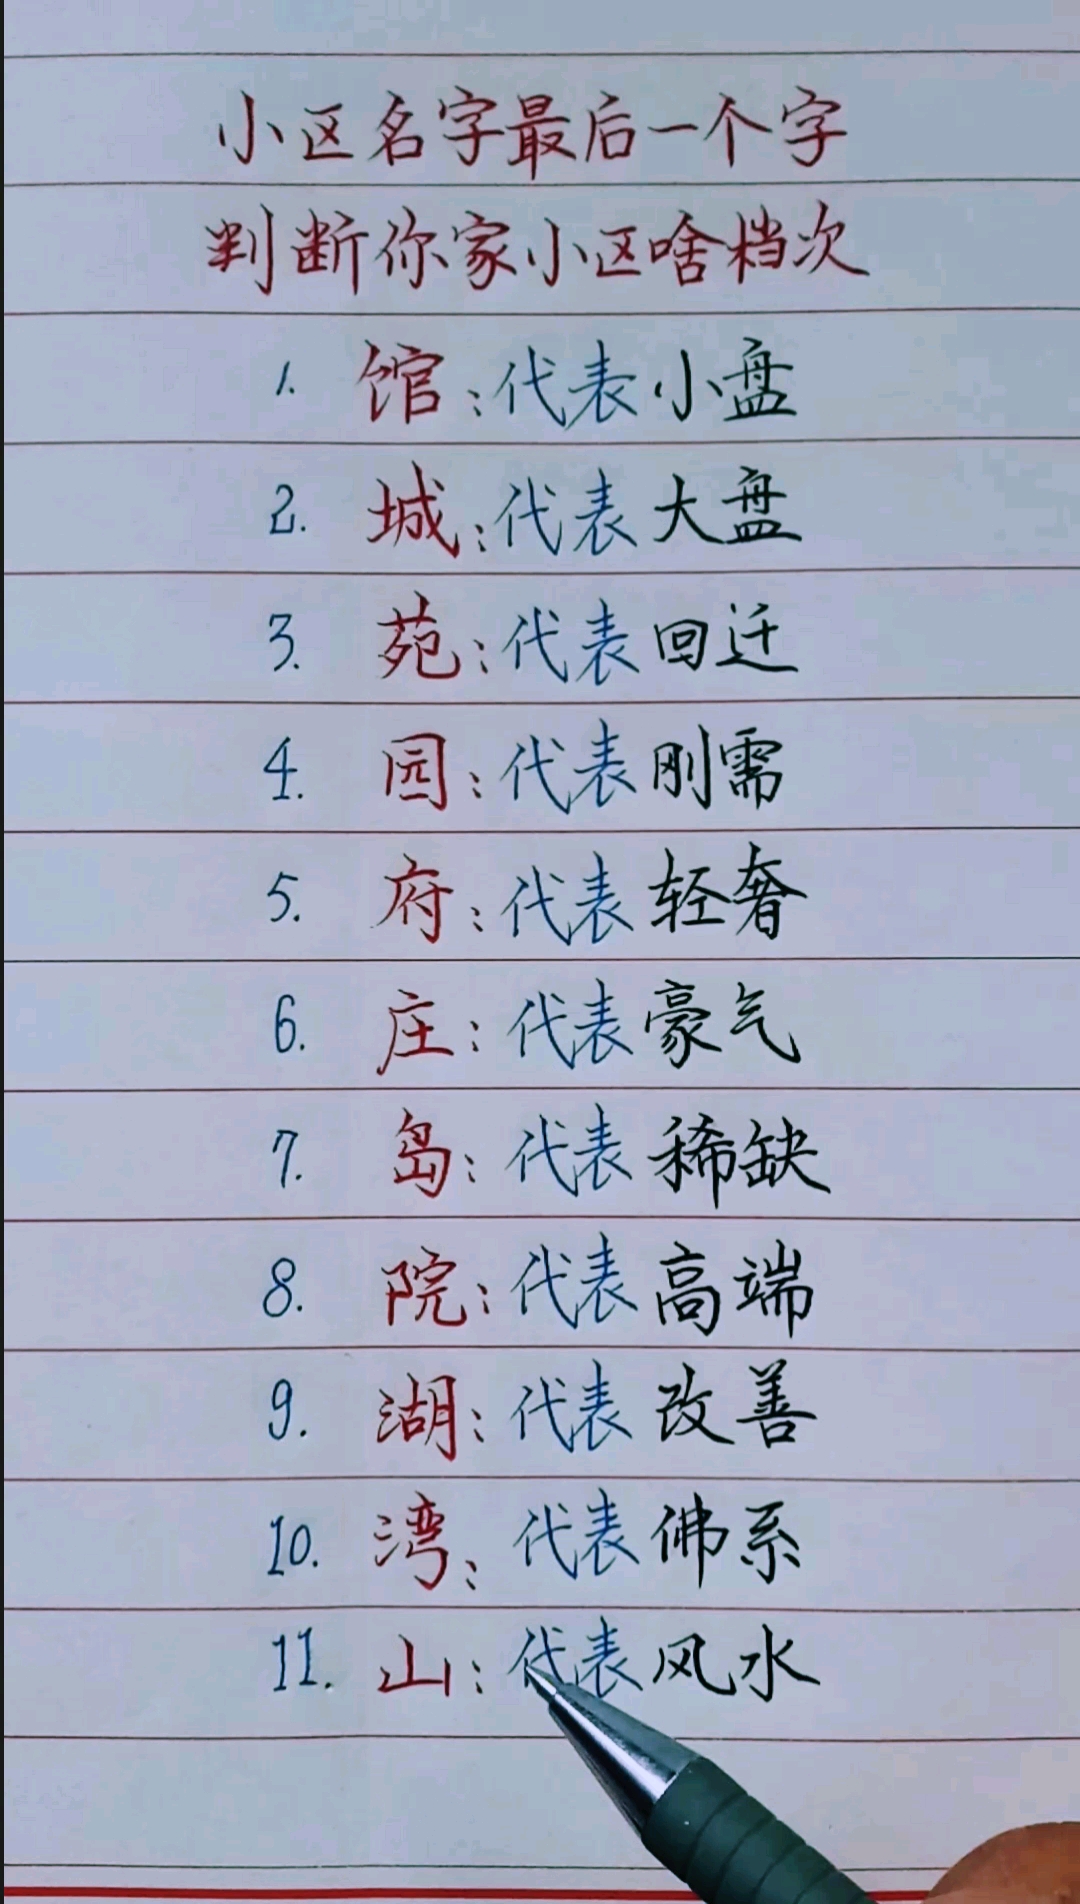 小区名字最后一个字
判断你家小区啥档次
1. 馆:代表小盘
2. 城:代表大盘
3. 苑:代表回迁
4. 园:代表刚需
5. 府:代表轻奢
6. 庄:代表豪气
7. 岛:代表稀缺
8. 院:代表高端
9. 湖:代表改善
10. 湾:代表佛系
11. 山:代表风水